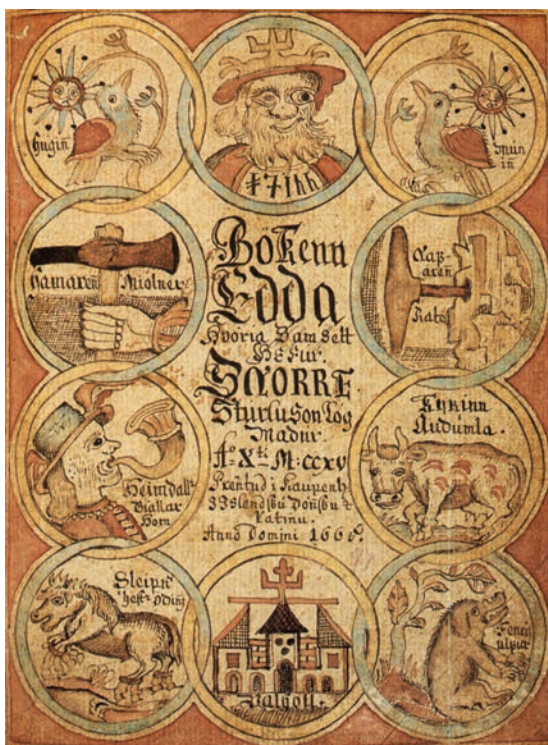 Hugiñ
Mun
iñ
Hamaren Miolner
Bókenn
Edda
Hvoria Samsett
Hefur
SNORRE
Sturluson Log
Madur.
Aͦ Xti M.CCXV
Prentud i
Islendsku Donsku &
Latinu.
Anno Domini 1666.
aren
Rate
Heimdallr
Giallar
Horn
Kyrinn
Audúmla.
Sleipn
hest Odins
Valholl